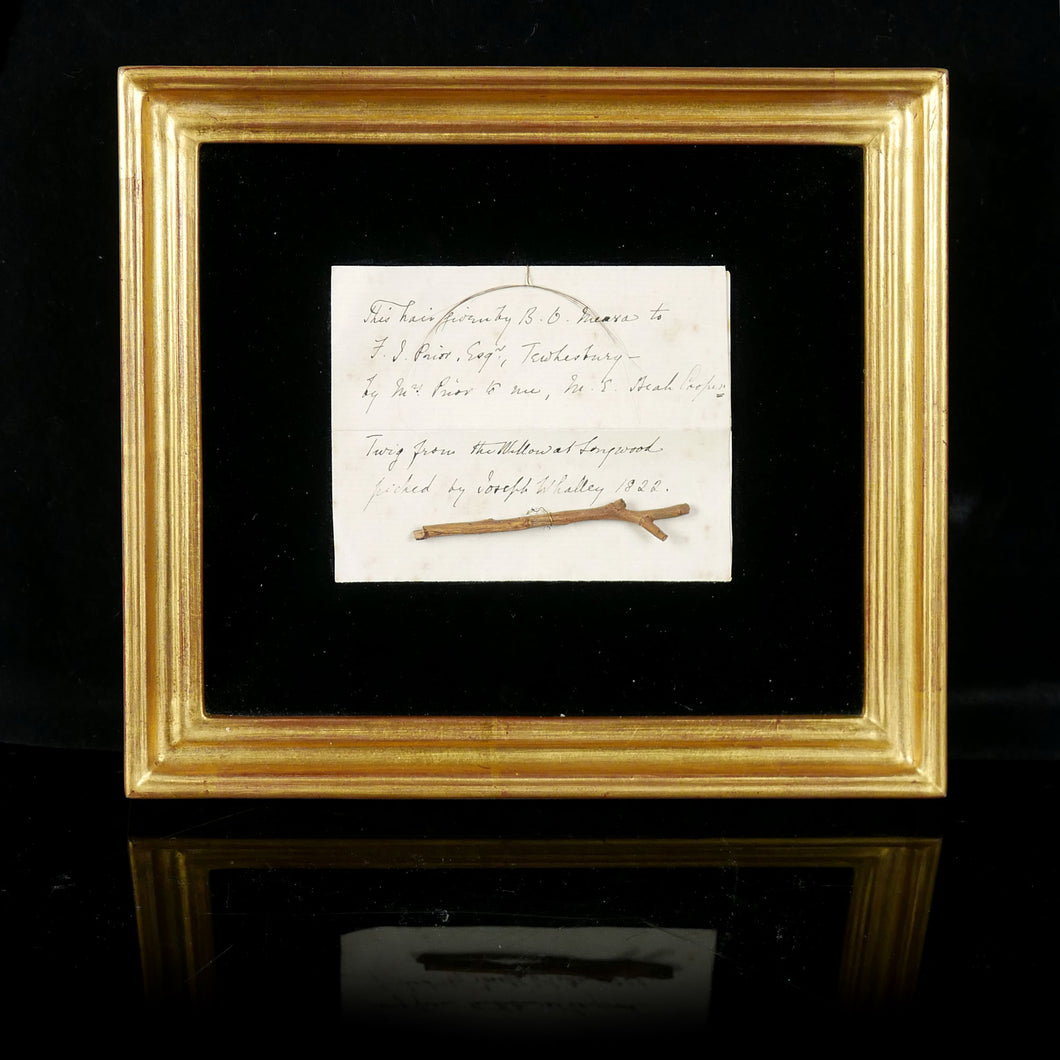 This hair given by B. O. Meara to
F. J. Prior, Esqr., Tewkesbury –
by Mrs. Prior to me, M. E. Cooper
Twig from the Willow at Longwood
picked by Joseph Whalley 1822.